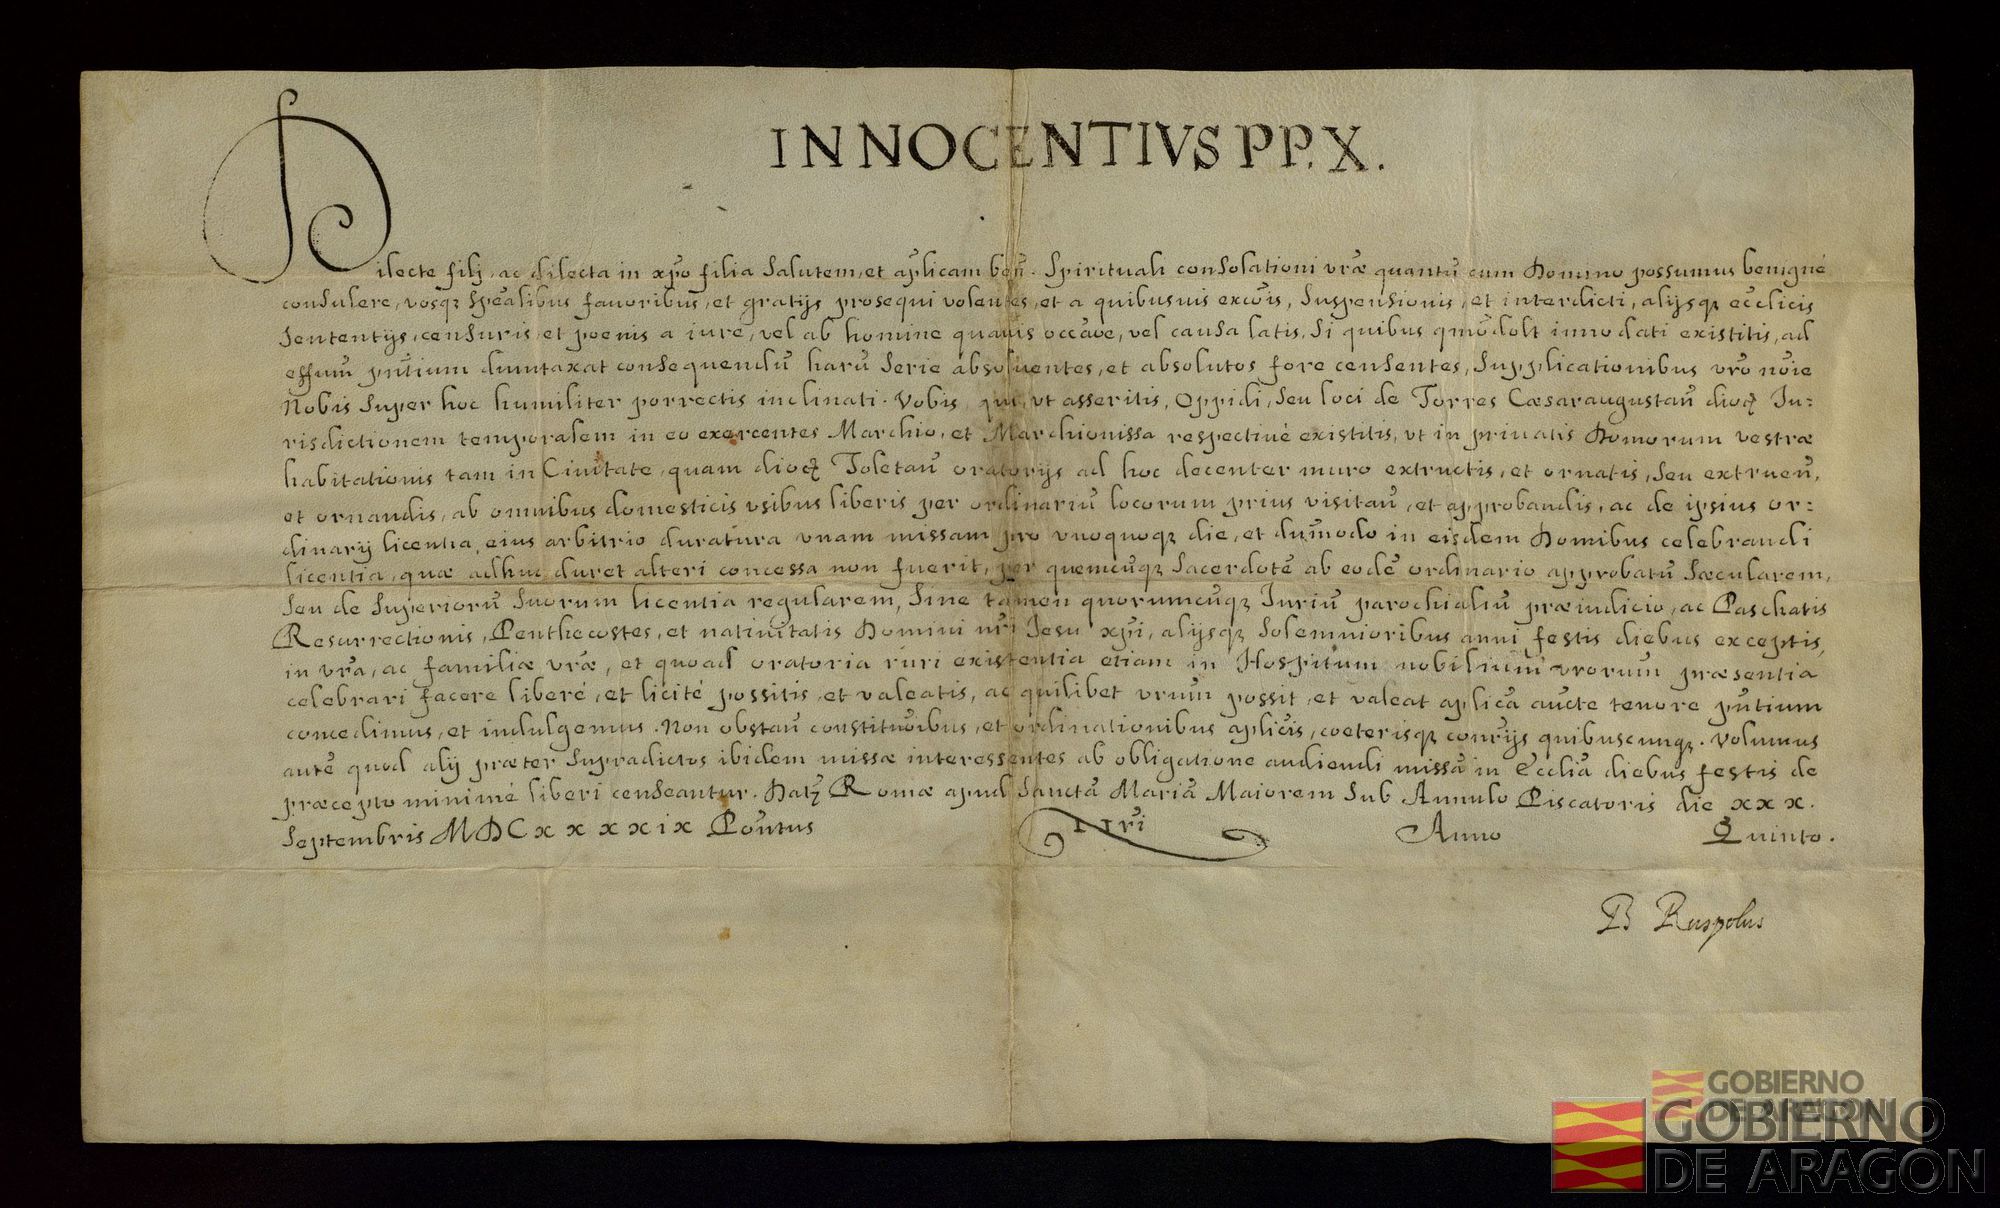 INNOCENTIVS PP. X.
Dilecte filj, ac dilecta in xp̄o filia Salutem, et ap̄licam ben̄. Spirituali consolationi vræ quantū cum Domino possumus benigné
consulere, vosq; spēalibus fauoribus, et gratijs prosequi volentes, et a quibusuis excōis, suspensionis, et interdicti, alijsq; ecc̄licis
sententijs, censuris, et poenis a iure, vel ab homine quauis occāōe, vel causa latis, si quibus qm̄odolt innodati existitis, ad
effum̄ pn̄tium dumtaxat consequendū harū serie absoluentes, et absolutos fore censentes, supplicationibus vrō nōie
Nobis super hoc humiliter porrectis inclinati. Vobis, qui, vt asseritis, Oppidi, seu loci de Torres Cæsaraugustan̄ dioq; Iu=
risdictionem temporalem in eo exercentes Marchio, et Marchionissa respectiué existitis, vt in priuatis Domorum vestræ
habitationis tam in Ciuitate, quam dioq; Toletan̄ oratorijs ad hoc decenter muro extructis, et ornatis, seu extruen̄,
et ornandis, ab omnibus domesticis vsibus liberis per ordinariū locorum prius visitan̄, et approbandis, ac de ipsius or=
dinarij licentia, eius arbitrio duratura vnam missam pro vnoquoq; die, et dum̄odo in eisdem Domibus celebrandi
licentia, quæ adhuc duret alteri concessa non fuerit, per quemcūq; sacerdotē ab eodē ordinario approbatū sæcularem,
seu de superiorū suorum licentia regularem, sine tamen quorumcūq; Iuriū parochialiū præiudicio, ac Paschatis
Resurrectionis, Penthecostes, et natiuitatis Domini nr̄i Jesu xp̄i, alijsq; solemnioribus anni festis diebus exceptis,
in vrā, ac familiæ vræ, et quoad oratoria ruri existentia etiam in Hospitum nobilium vrorum præsentia
celebrari facere liberé, et licité possitis, et valeatis, ac quilibet vrum̄ possit, et valeat ap̄lica aūcte tenore pn̄tium
concedimus, et indulgemus. Non obstan̄ constitutōibus, et ordinationibus ap̄licis, coeterisq; conrijs quibuscunq;. Volumus
autē quod alij præter supradictos ibidem missæ interessentes ab obligatione audiendi missā in Ecc̄lia diebus festis de
præcepto minimé liberi censeantur. Dat; Romæ apud Sanctā Mariā Maiorem sub Annulo Piscatoris die xxx.
Septembris MDCxxxxix Pont̄us nr̄i Anno Quinto.
B Ruspolus
GOBIERNO
DE ARAGON
GOBIERNO
DE ARAGON